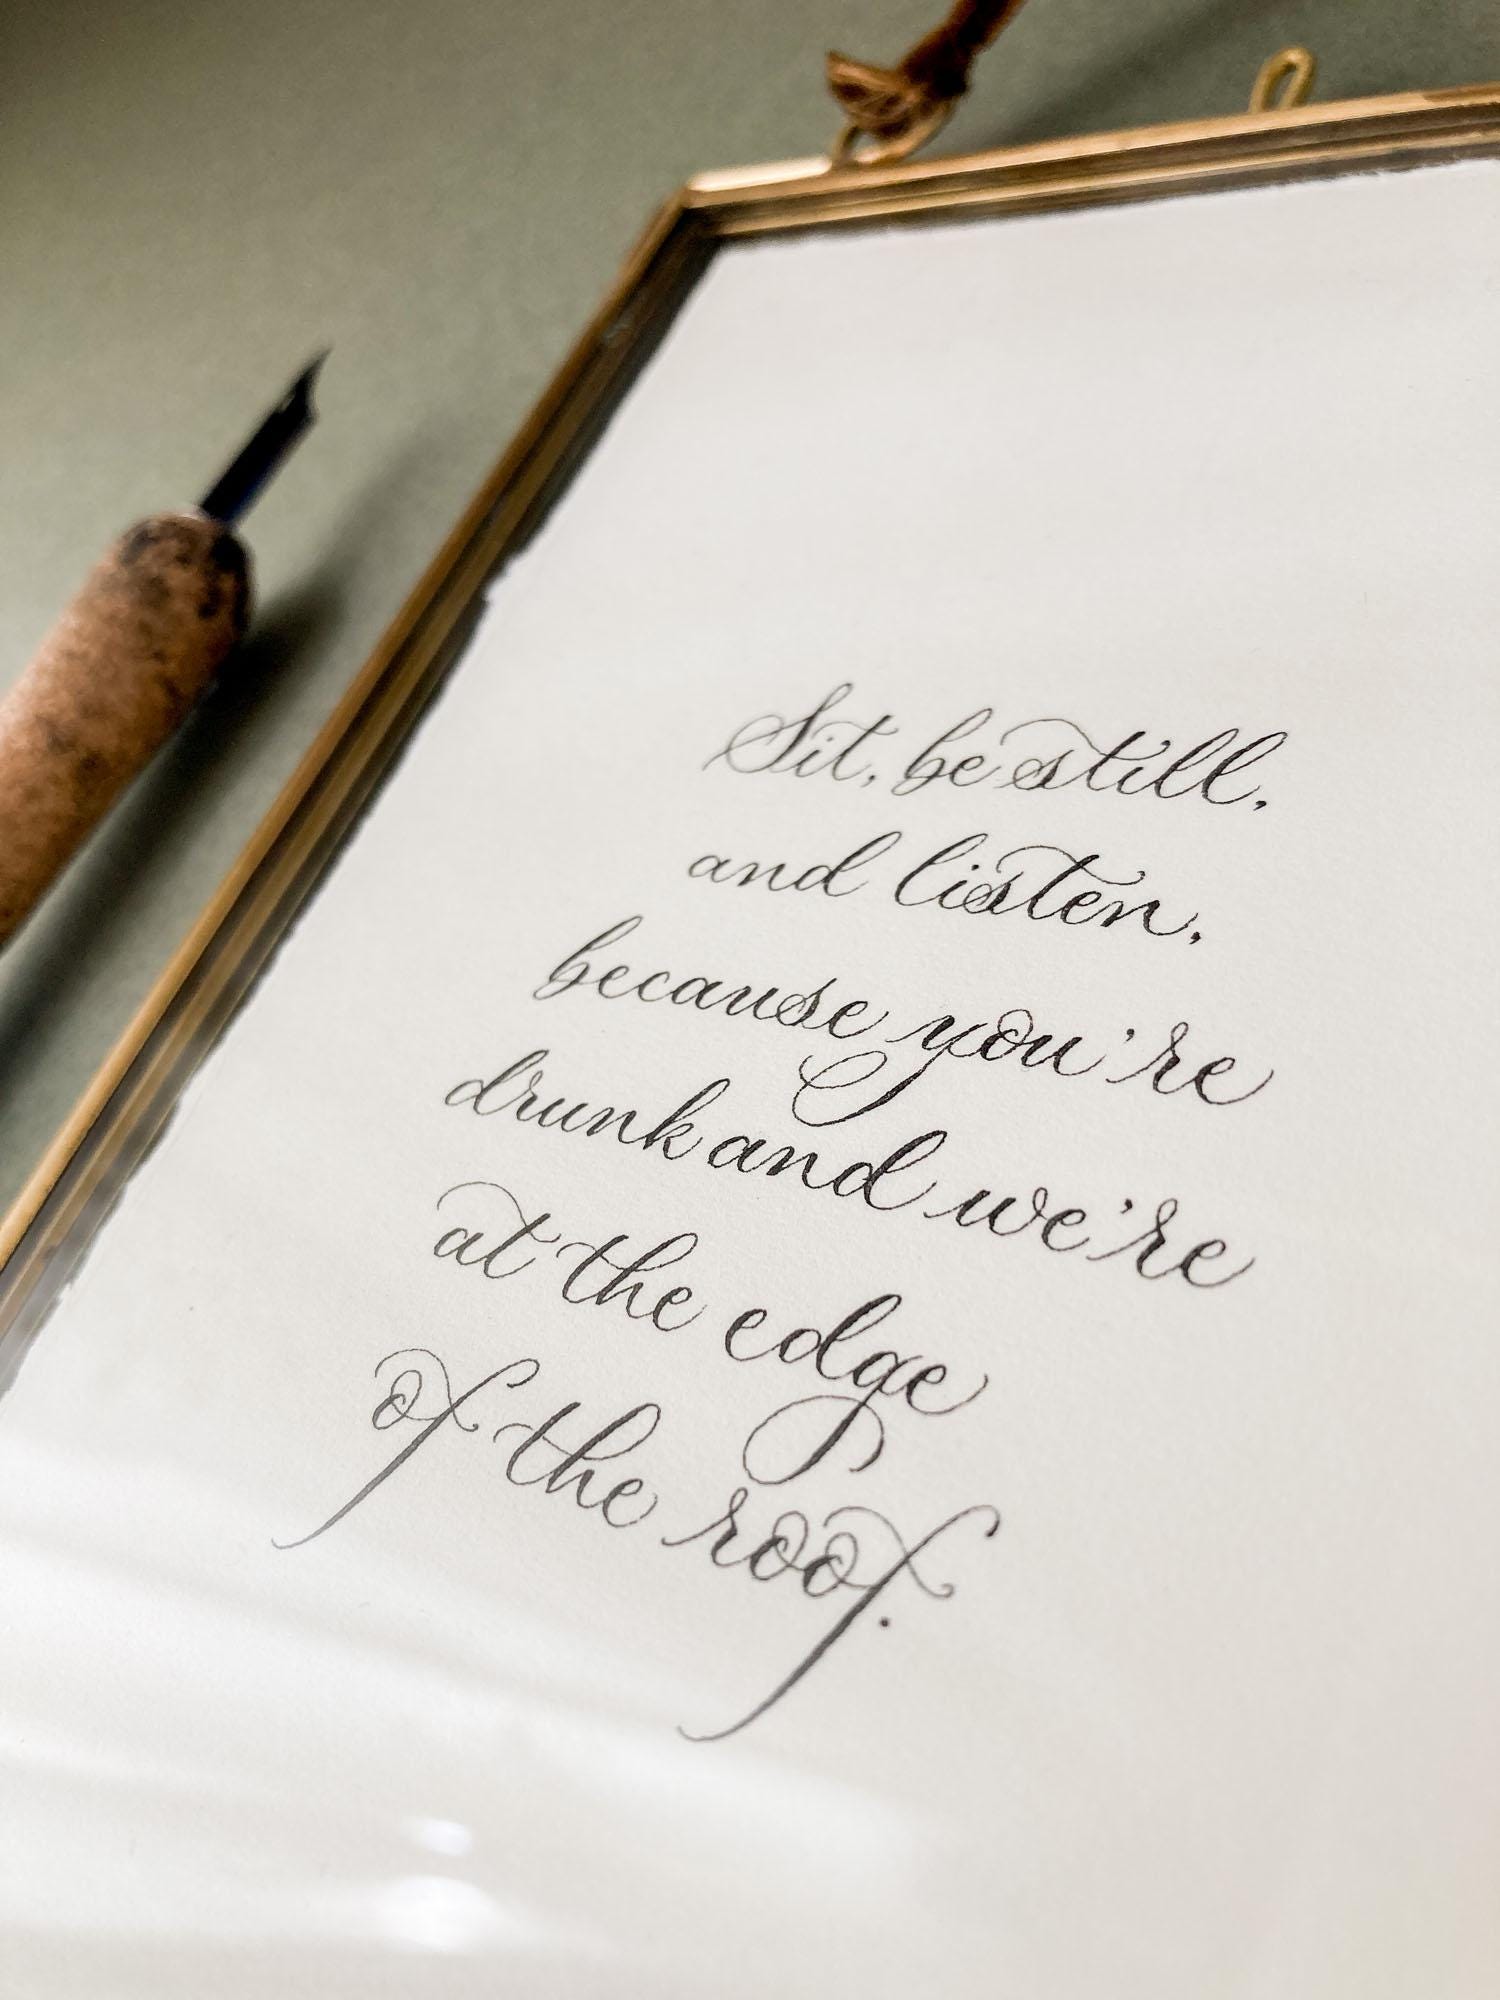 Sit, be still,
and listen,
because you're
drunk and we're
at the edge
of the roof.